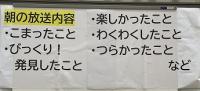 朝の放送内容
・こまったこと
・びっくり！
発見したこと
・楽しかったこと
・わくわくしたこと
・つらかったこと
など